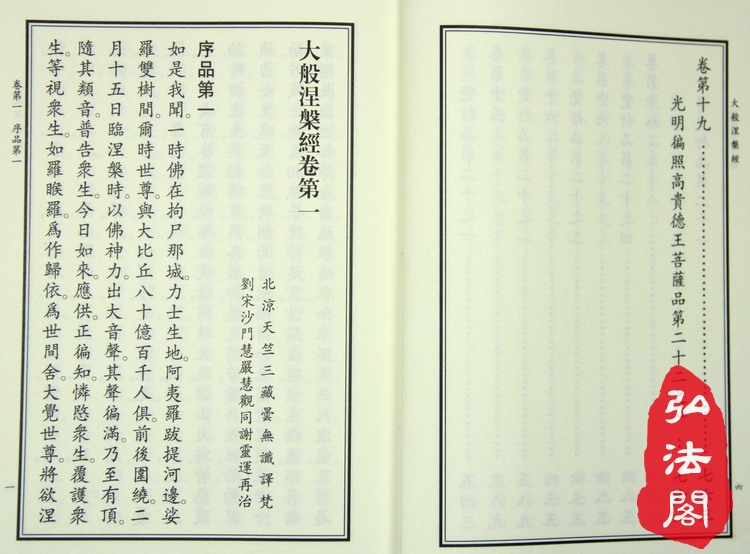 大般涅槃經
卷第十九
光明徧照高貴德王菩薩品第二十二
六
弘法閣
大般涅槃經卷第一
北涼天竺三藏曇無讖譯梵
劉宋沙門慧嚴慧觀同謝靈運再治
序品第一
如是我聞。一時佛在拘尸那城力士生地。阿夷羅跋提河邊。娑
羅雙樹間。爾時世尊。與大比丘八十億百千人俱。前後圍繞。二
月十五日。臨涅槃時。以佛神力。出大音聲。其聲徧滿。乃至有頂。
隨其類音。普告衆生。今日如來。應供。正徧知。憐愍衆生。覆護衆
生。等視衆生。如羅睺羅。爲作歸依。爲世間舍。大覺世尊。將欲涅
卷第一 序品第一
一